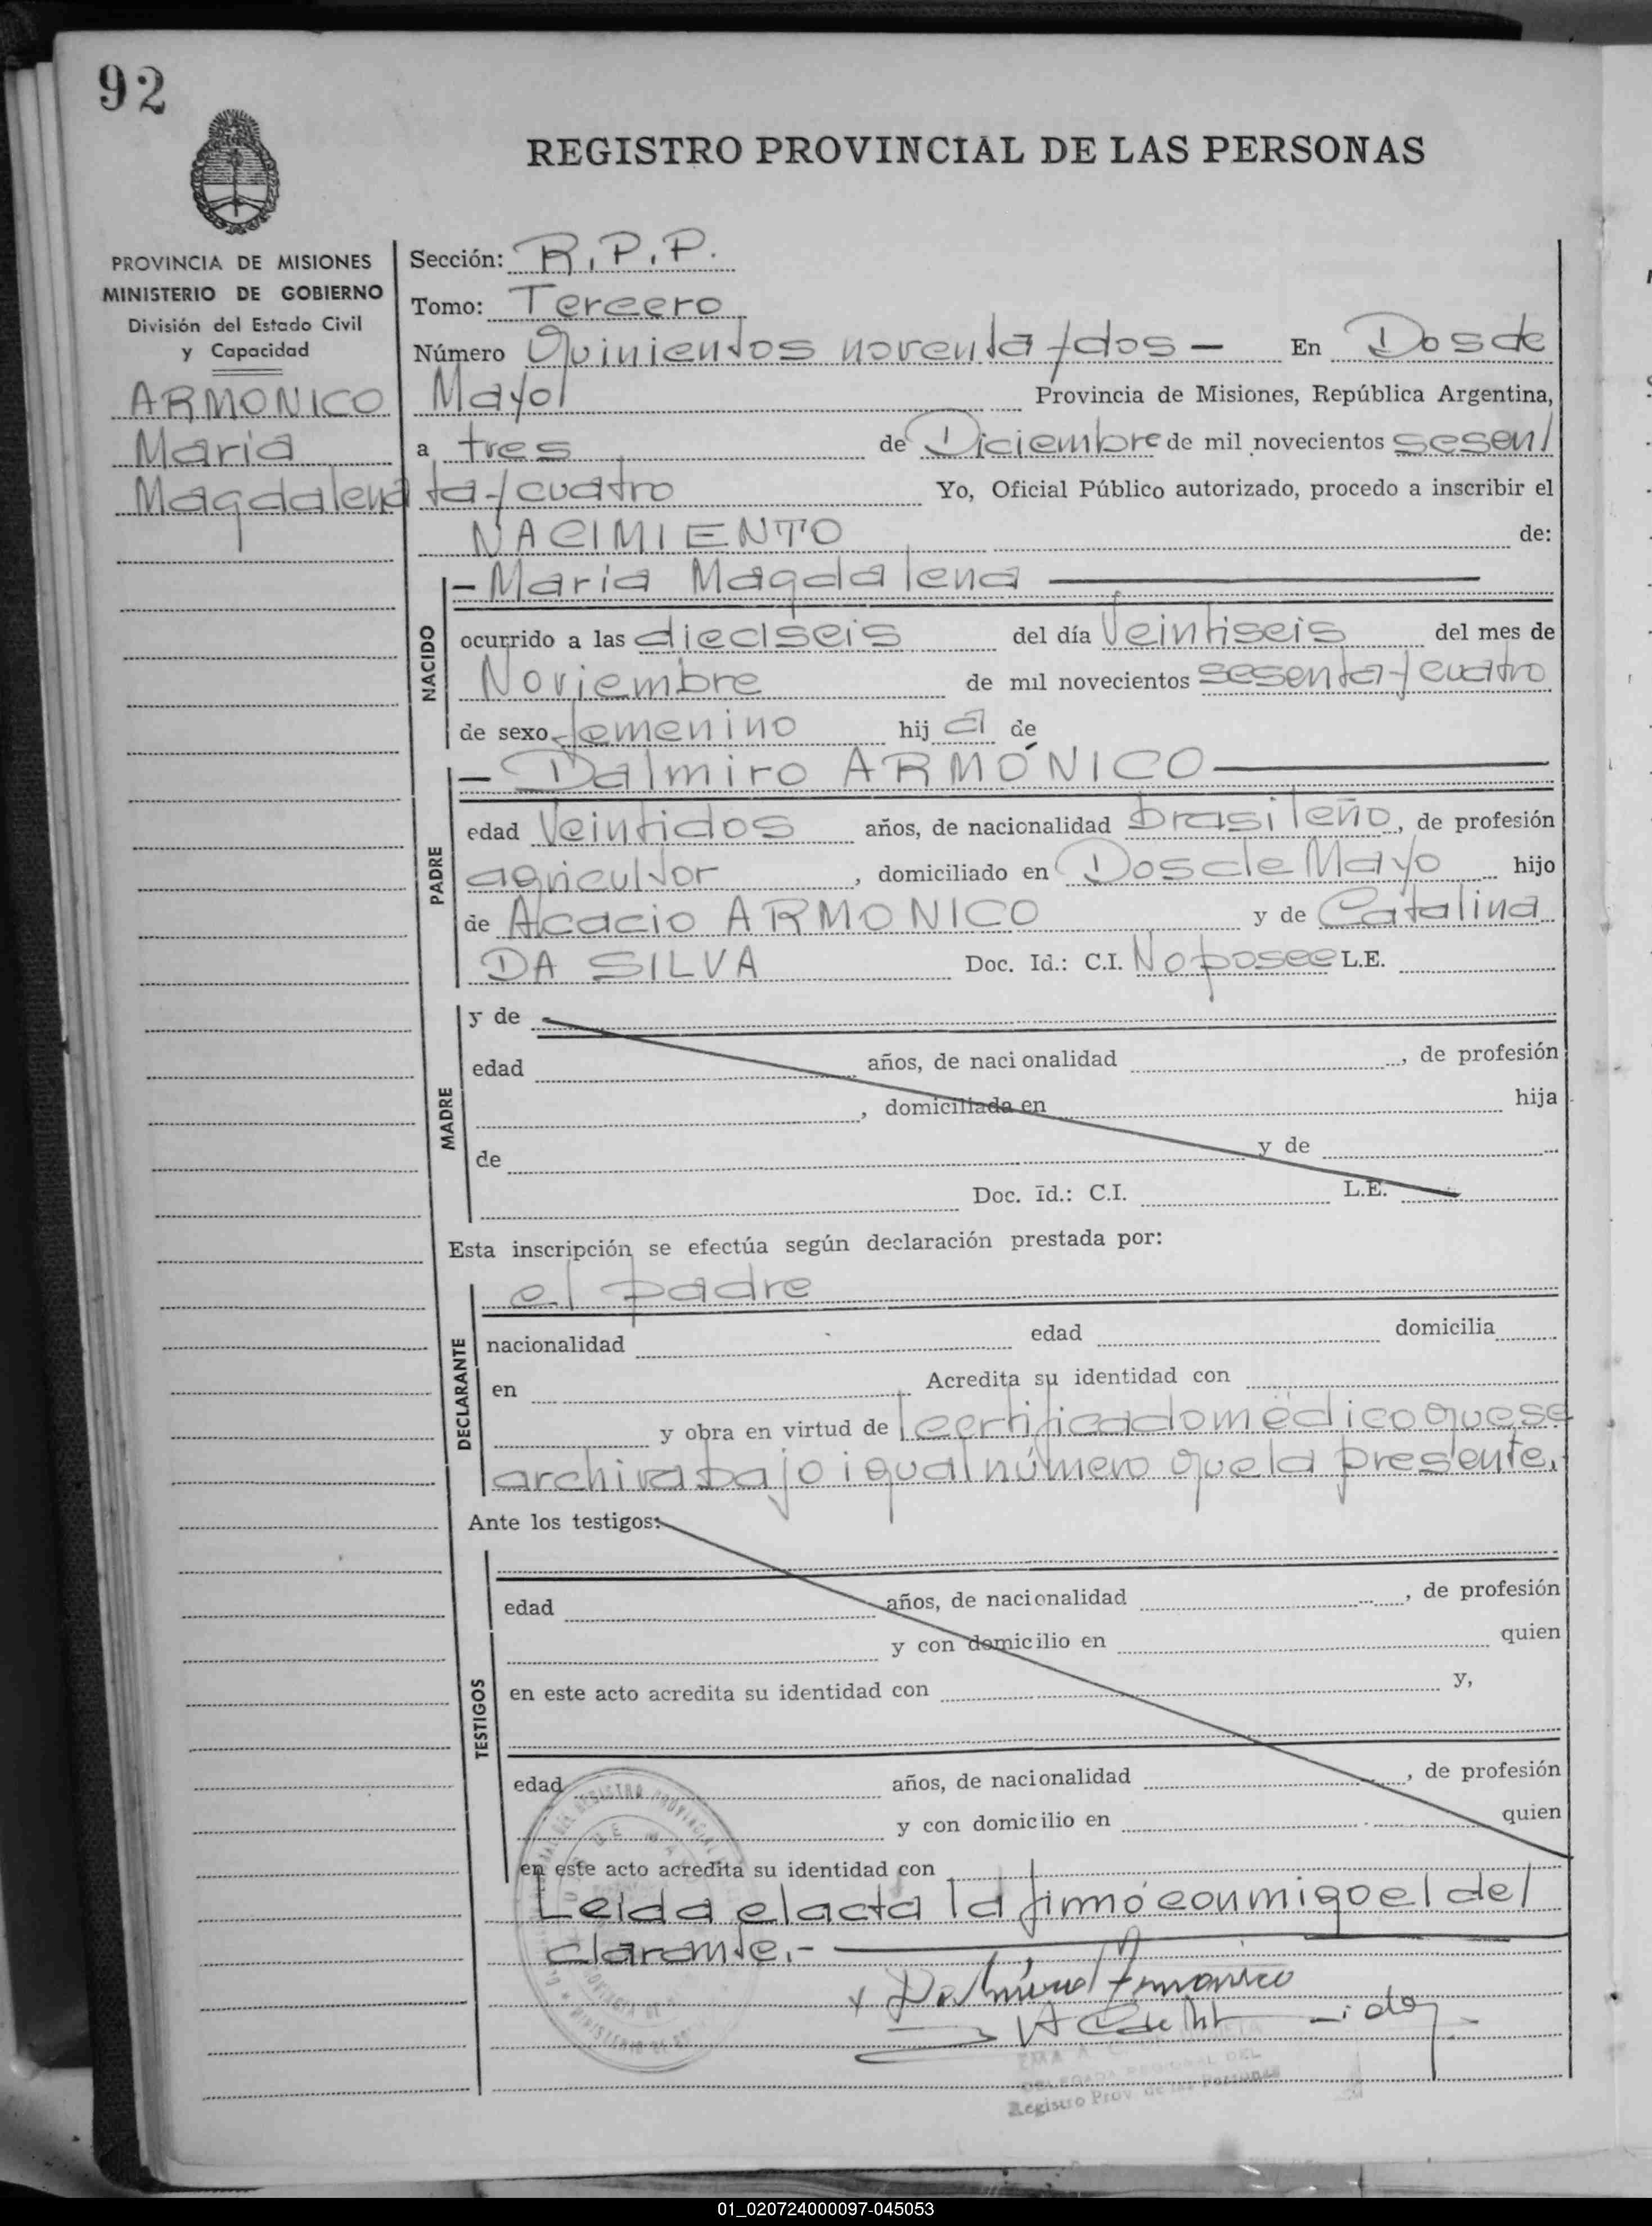 92
REGISTRO PROVINCIAL DE LAS PERSONAS
PROVINCIA DE MISIONES
MINISTERIO DE GOBIERNO
División del Estado Civil
y Capacidad
ARMONICO
Maria
Magdalena
Sección: R.P.P.
Tomo: Tercero
Número Quinientos noventa y dos — En Dos de
Mayo Provincia de Misiones, República Argentina,
a tres de Diciembre de mil novecientos sesen/
ta y cuatro Yo, Oficial Público autorizado, procedo a inscribir el
NACIMIENTO de:
NACIDO
— Maria Magdalena —
ocurrido a las dieciseis del día Veintiseis del mes de
Noviembre de mil novecientos sesenta y cuatro
de sexo femenino hij a de
PADRE
— Dalmiro ARMÓNICO —
edad Veintidos años, de nacionalidad brasileño, de profesión
agricultor, domiciliado en Dos de Mayo hijo
de Acacio ARMONICO y de Catalina
DA SILVA Doc. Id.: C.I. No posee L.E.
MADRE
y de
edad años, de nacionalidad , de profesión
, domiciliada en hija
de y de
Doc. Id.: C.I. L.E.
Esta inscripción se efectúa según declaración prestada por:
DECLARANTE
el padre
nacionalidad edad domicilia
en Acredita su identidad con
y obra en virtud de l certificado médico que se
archiva bajo igual número que la presente.
Ante los testigos:
TESTIGOS
edad años, de nacionalidad , de profesión
y con domicilio en quien
en este acto acredita su identidad con y,
edad años, de nacionalidad , de profesión
y con domicilio en quien
en este acto acredita su identidad con
Leida el acta la firmó conmigo el de/
clarante.- —
x Dalmiro Armonico
DELEGADA REGIONAL DEL
Registro Prov. de las Personas
01_020724000097-045053